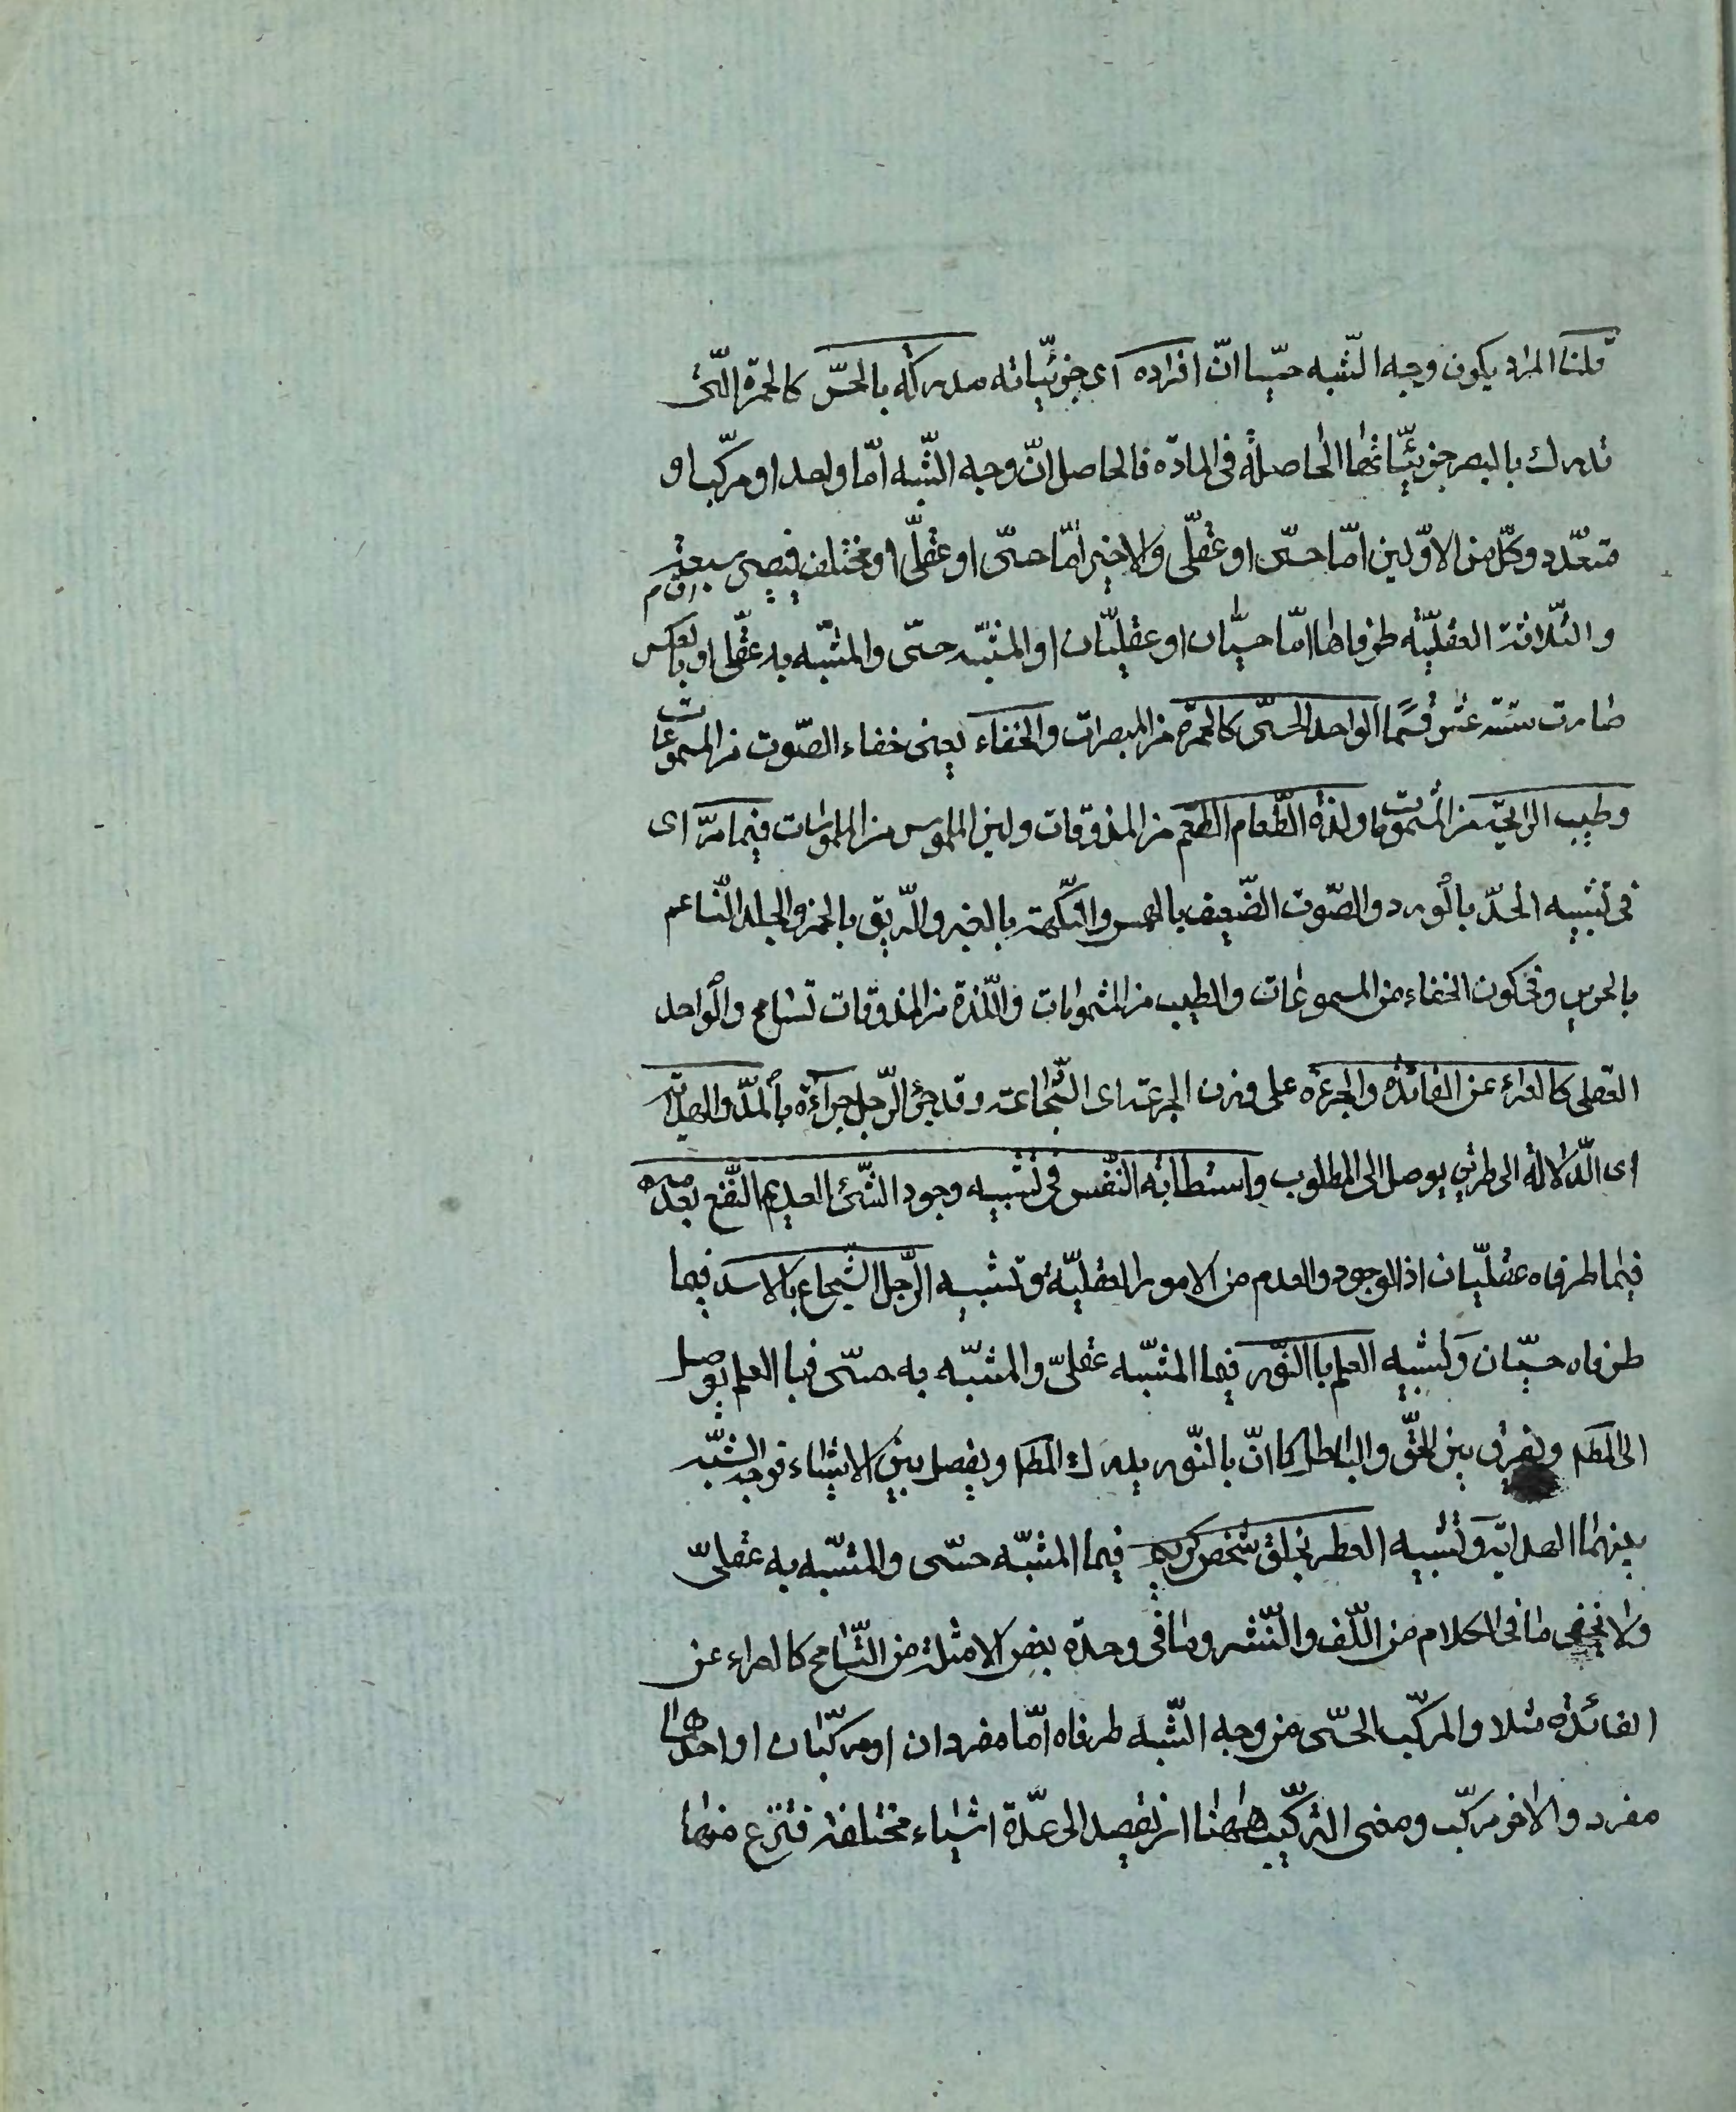 قلنا المراد يكون وجه الشّبه حسّيا انّ افراده اى جزئيّاته مدركة بالحسّ كالحمرة الّتى
تدرك بالبصر جزئيّاتها الحاصلة فى المادّه فالحاصل انّ وجه الشّبه امّا واحد او مركّب او
متعدّد وكلّ من الاوّلين امّا حسّى او عقلّى والاخير امّا حسّى او عقلّى او مختلف فيصير سبعة اقسام
والثّلاثة العقليّة طرفاها امّا حسيّان او عقليّان او المشبّه حسّى والمشبّه به عقلّى او بالعكس
صارت ستّة عشر قسمًا الواحد الحسّى كالحمرة من المبصرات والخفاء يعنى خفاء الصّوت من المسموعات
وطيب الرايحة من المشمومات ولذة الطّعام الطّعم من المذوقات ولين الملموس من الملموسات فيما مرّ اى
فى تشبيه الخدّ بالورد والصّوت الضّعيف بالهمس والنكهة بالعنبر والرّيق بالخمر والجلد النّاعم
بالحرير وفى كون الخفاء من المسموعات والطيب من المشمومات واللّذة من المذوقات تسامح والواحد
العقلى كالعراء عن الفائدة والجرءة على وزن الجرعة اى الشّجاعة وقد جرئ الرّجل جراءة بالمدّ والهداية
اى الدّلالة الى طريق يوصل الى المطلوب واستطابة النّفس فى تشبيه وجود الشّئ العديم النّفع بعدمه
فيما طرفاه عقليّان اذ الوجود والعدم من الامور العقليّة وتشبيه الرّجل الشّجاع بالاسد فيما
طرفاه حسيّان وتشبيه العلم باالنّور فيما المشبّه عقلىّ والمشبّه به حسّى فبا العلم يوصل
الى المط ويفرق بين الحقّ والباطل كما انّ بالنّور يدرك المط ويفصل بين الاشياء فوجه الشّبه
بينهما الهداية وتشبيه العطر بخلق شخص كريم فيما المشبّه حسّى والمشبّه به عقلىّ
ولا يخفى ما فى الكلام من اللّف والنّشر وما فى وحدة بعض الامثلة من التّسامح كالعراء عن
الفائدة مثلا والمركّب الحسّى من وجه الشّبه طرفاه امّا مفردان او مركّبان او احدهما
مفرد والاخر مركّب ومعنى التركّيب ههنا ان تقصد الى عدّة اشياء مختلفة فتنزع منها